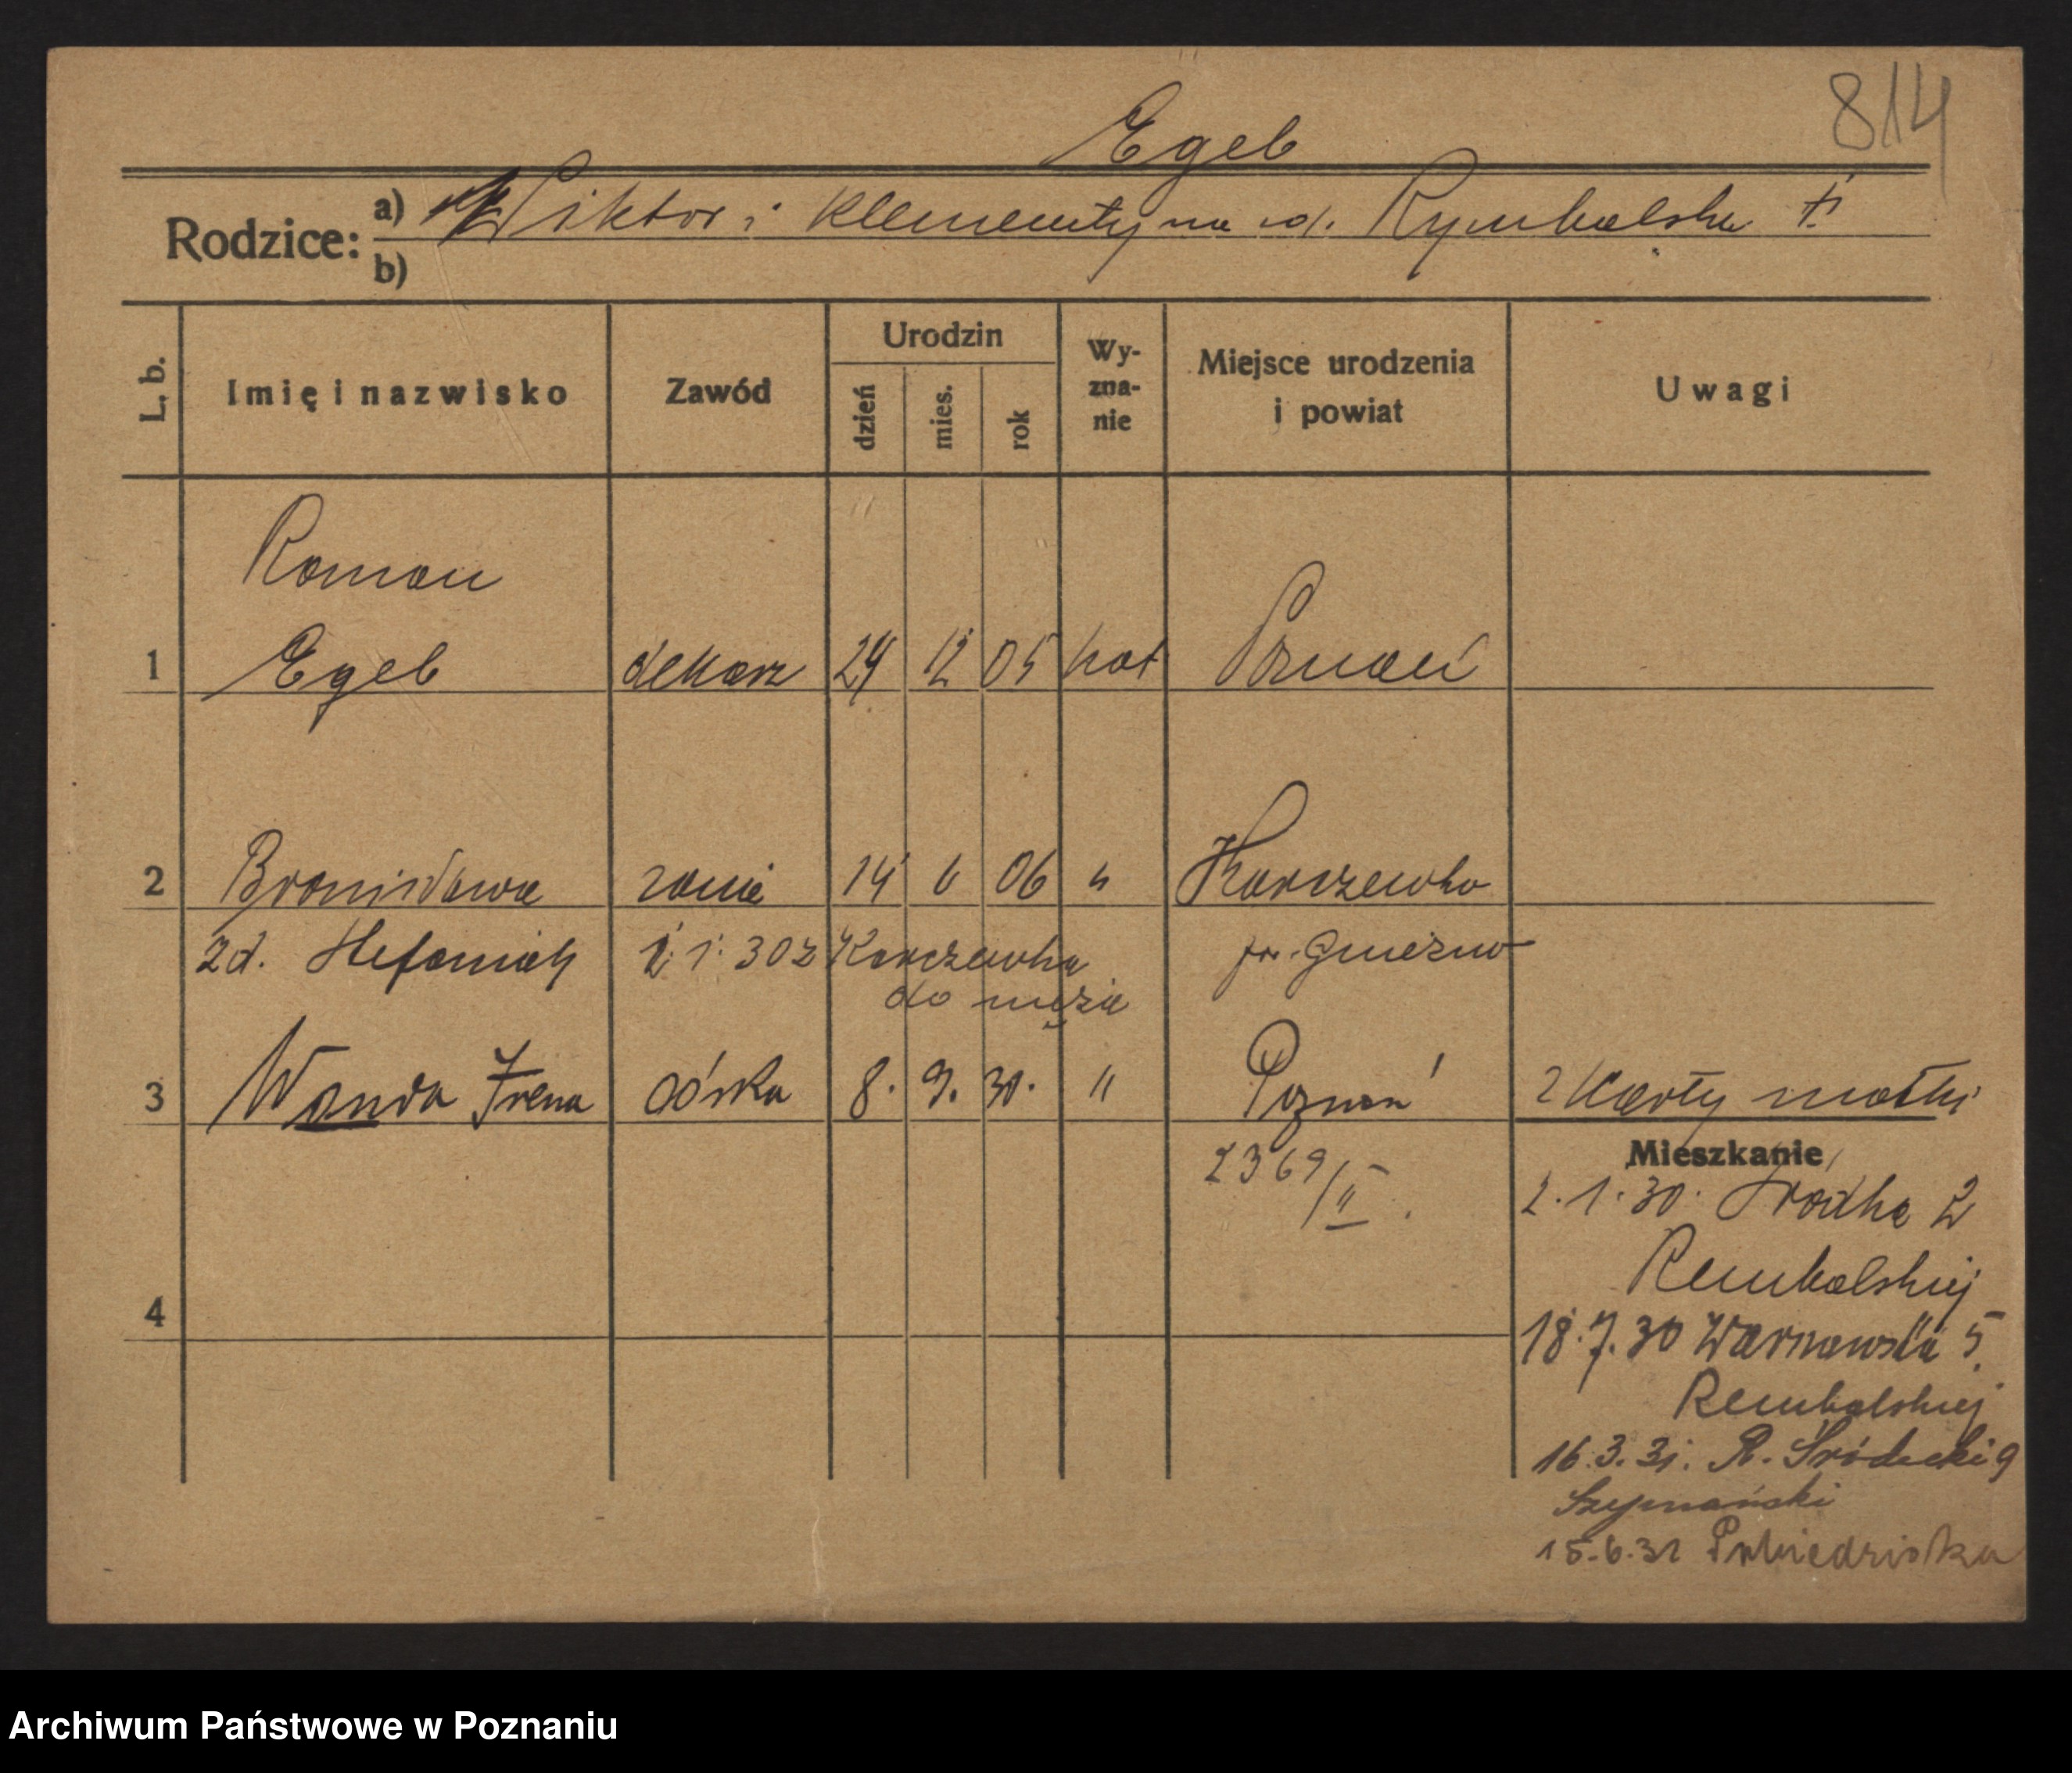 814
Egeb
Rodzice:
a) Wiktor i Klementyna zd. Rymbalska
b)
L. b.
Imię i nazwisko
Zawód
Urodzin
dzień
mies.
rok
Wy-
zna-
nie
Miejsce urodzenia
i powiat
Uwagi
Roman
1 Egeb dekarz 24 12 05 kat Poznań
2 Bronisława żona 14 6 06 " Karczewko
zd. Stefaniak 2. 1. 30 z Karczewka pow. Gniezno
do męża
3 Wanda Irena córka 8. 9. 30. " Poznań z karty matki
2369/II.
Mieszkanie
2. 1. 30. Środka 2
Rembalskiej
4
18.7.30 Warszawska 5.
Rembalskiej
16.3.31. R. Śródecki 9
Szymański
15.6.31 Pobiedziska
Archiwum Państwowe w Poznaniu